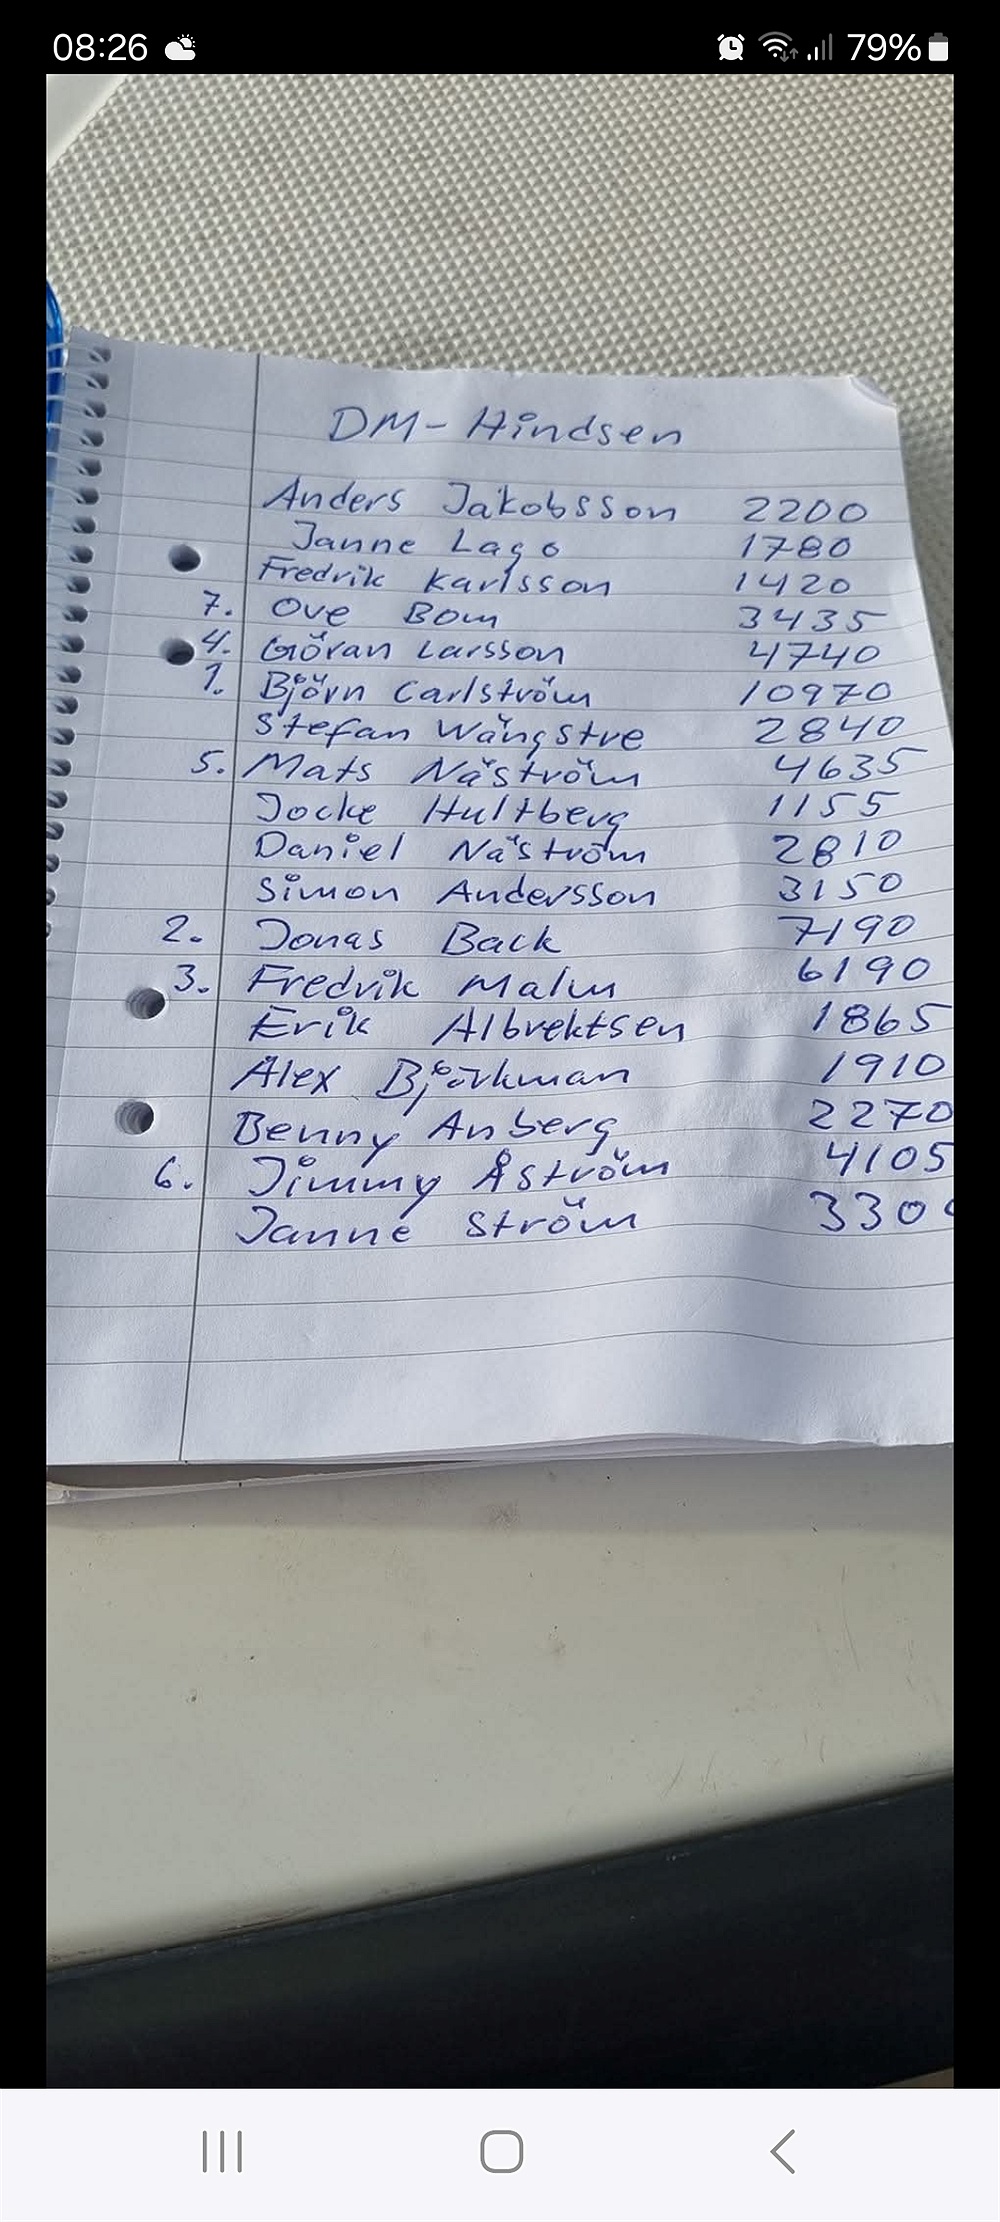 08:26 79%
DM-Hindsen
Anders Jakobsson 2200
Janne Lago 1780
Fredrik Karlsson 1420
7. Ove Bom 3435
4. Göran Larsson 4740
1. Björn Carlström 10970
Stefan Wängstre 2840
5. Mats Näström 4635
Jocke Hultberg 1155
Daniel Näström 2810
Simon Andersson 3150
2. Jonas Back 7190
3. Fredrik Malm 6190
Erik Albrektsen 1865
Alex Björkman 1910
Benny Anberg 2270
6. Jimmy Åström 4105
Janne Ström